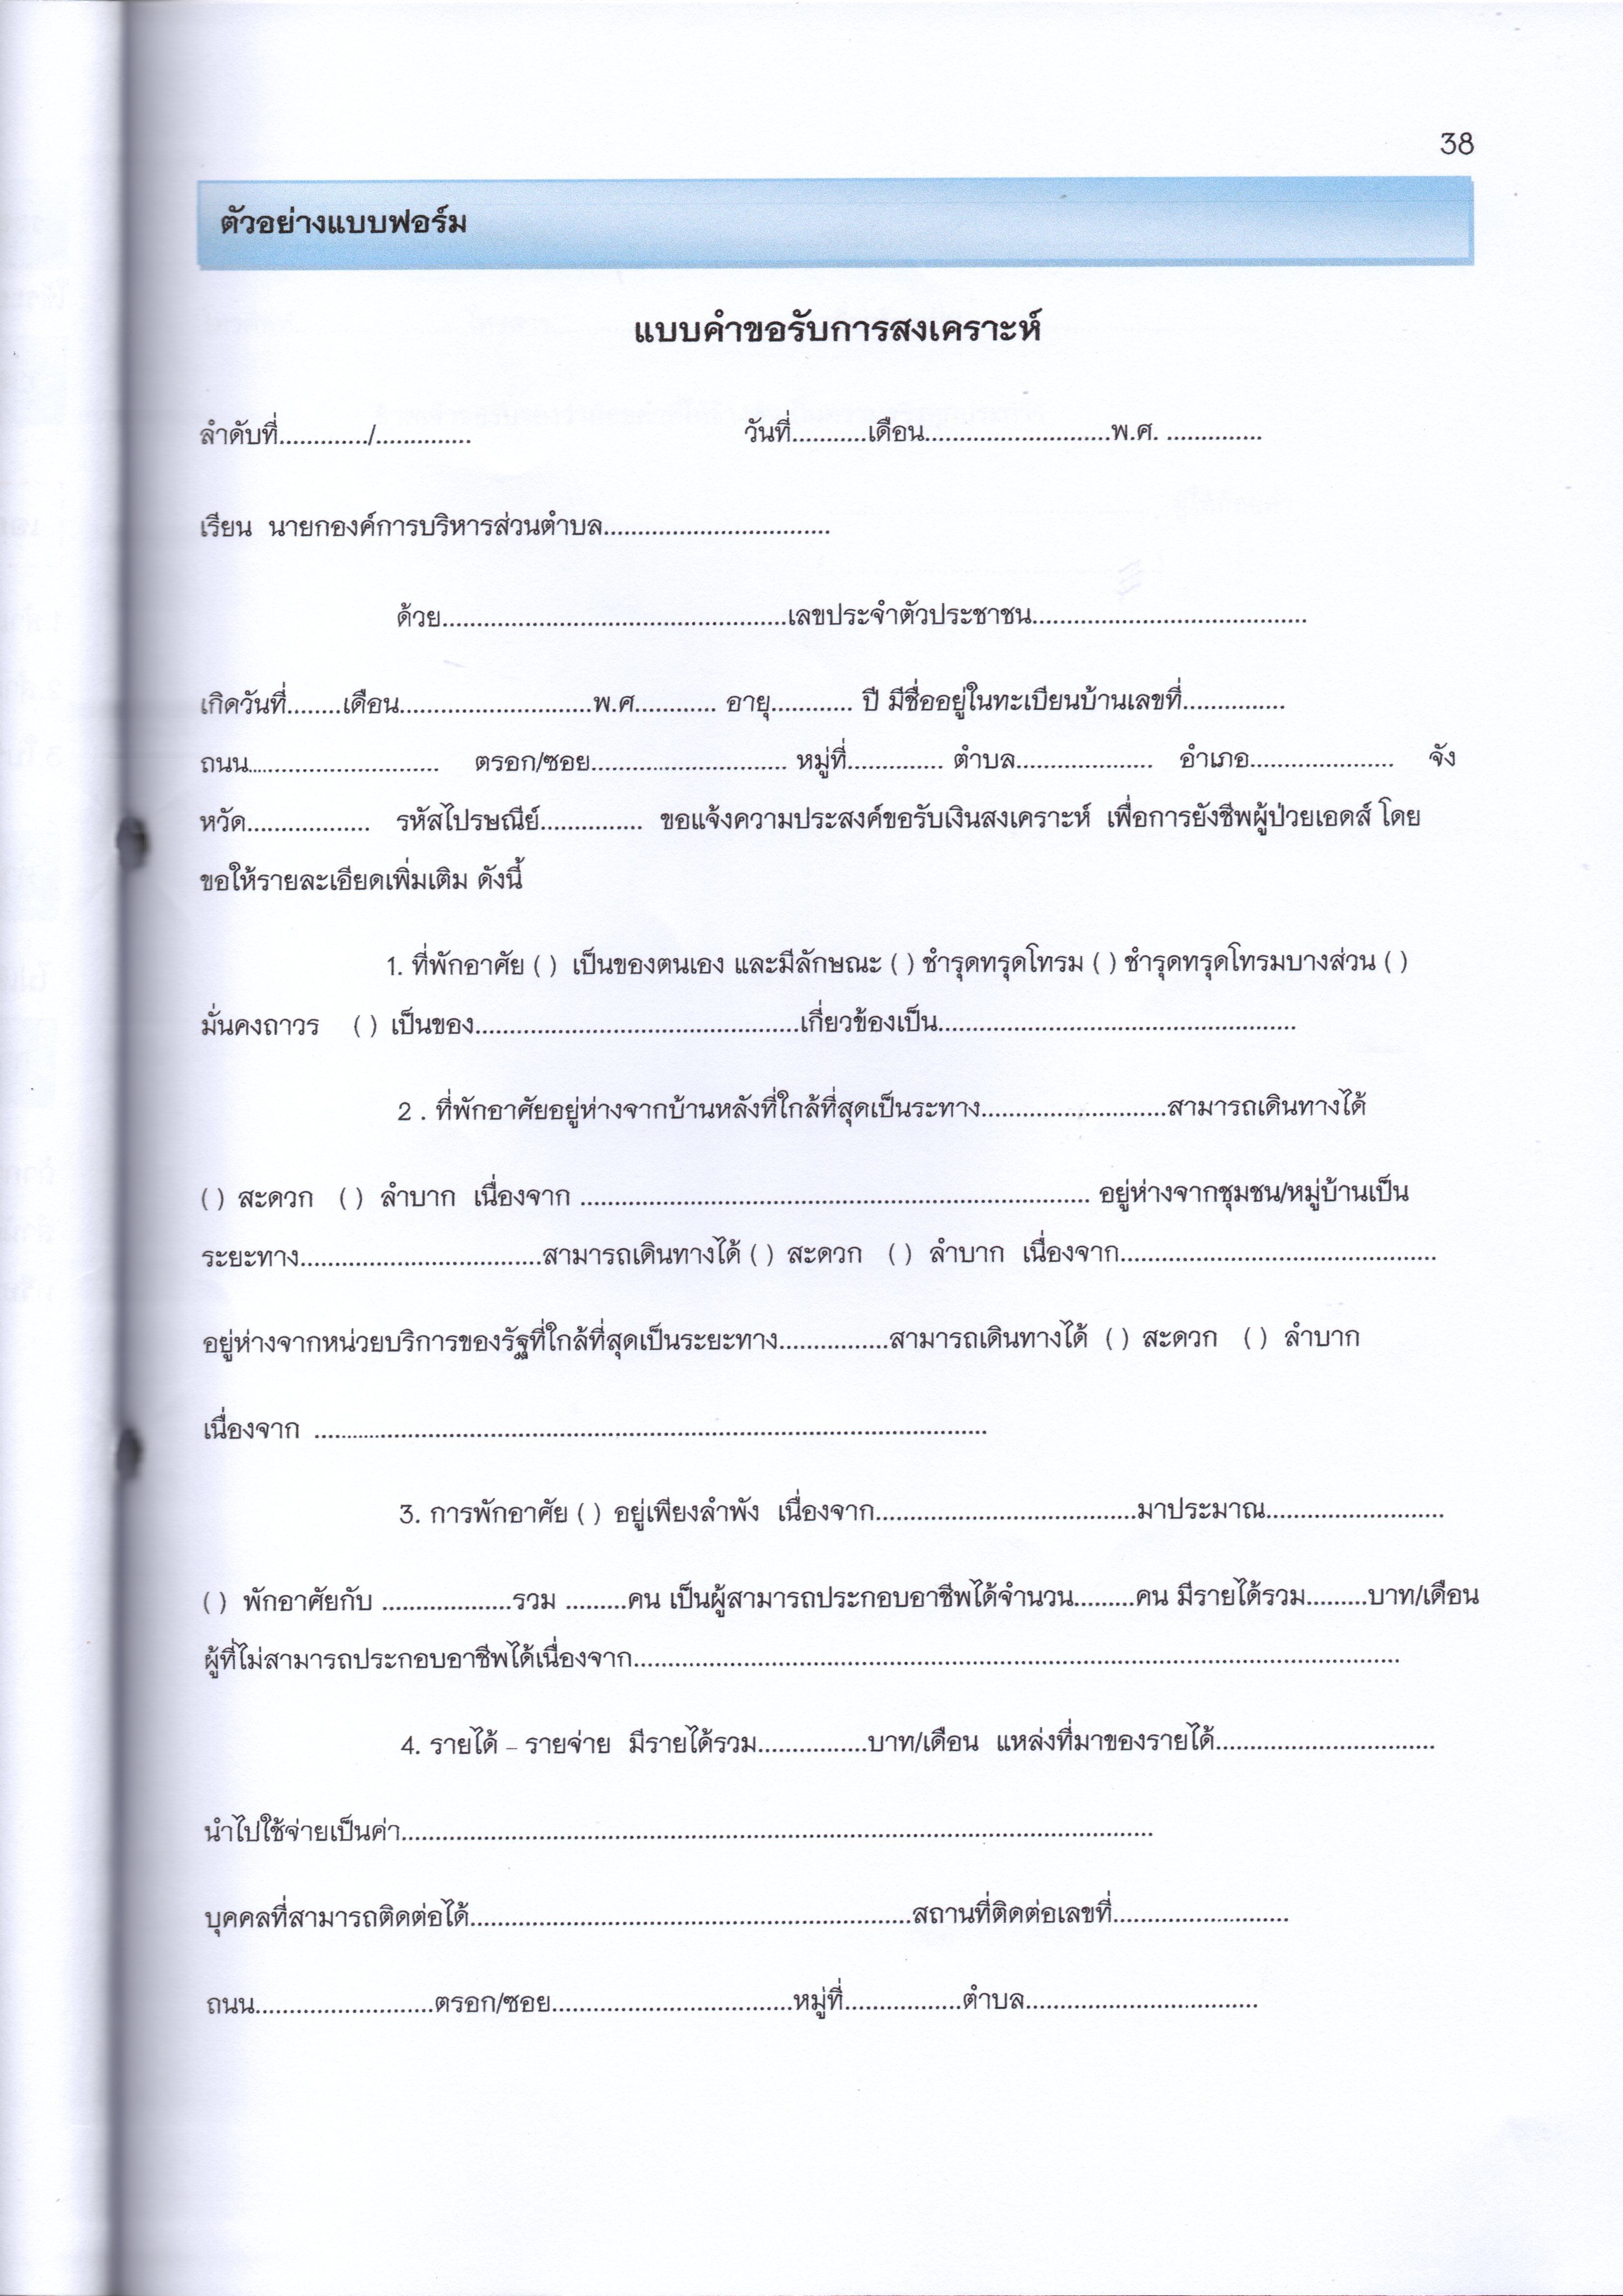 38
ตัวอย่างแบบฟอร์ม
แบบคำขอรับการสงเคราะห์
ลำดับที่............./.............. วันที่...........เดือน...........................พ.ศ. ..............
เรียน นายกองค์การบริหารส่วนตำบล.................................
ด้วย..................................................เลขประจำตัวประชาชน........................................
เกิดวันที่........เดือน............................พ.ศ............ อายุ............ ปี มีชื่ออยู่ในทะเบียนบ้านเลขที่...............
ถนน............................ ตรอก/ซอย............................. หมู่ที่.............. ตำบล.................... อำเภอ..................... จัง
หวัด.................. รหัสไปรษณีย์............... ขอแจ้งความประสงค์ขอรับเงินสงเคราะห์ เพื่อการยังชีพผู้ป่วยเอดส์ โดย
ขอให้รายละเอียดเพิ่มเติม ดังนี้
1. ที่พักอาศัย ( ) เป็นของตนเอง และมีลักษณะ ( ) ชำรุดทรุดโทรม ( ) ชำรุดทรุดโทรมบางส่วน ( )
มั่นคงถาวร ( ) เป็นของ...............................................เกี่ยวข้องเป็น....................................................
2 . ที่พักอาศัยอยู่ห่างจากบ้านหลังที่ใกล้ที่สุดเป็นระทาง...........................สามารถเดินทางได้
( ) สะดวก ( ) ลำบาก เนื่องจาก .......................................................................... อยู่ห่างจากชุมชน/หมู่บ้านเป็น
ระยะทาง...................................สามารถเดินทางได้ ( ) สะดวก ( ) ลำบาก เนื่องจาก..............................................
อยู่ห่างจากหน่วยบริการของรัฐที่ใกล้ที่สุดเป็นระยะทาง................สามารถเดินทางได้ ( ) สะดวก ( ) ลำบาก
เนื่องจาก ..................................................................................................
3. การพักอาศัย ( ) อยู่เพียงลำพัง เนื่องจาก......................................มาประมาณ..........................
( ) พักอาศัยกับ ...................รวม .........คน เป็นผู้สามารถประกอบอาชีพได้จำนวน.........คน มีรายได้รวม.........บาท/เดือน
ผู้ที่ไม่สามารถประกอบอาชีพได้เนื่องจาก...............................................................................................................
4. รายได้ – รายจ่าย มีรายได้รวม................บาท/เดือน แหล่งที่มาของรายได้................................
นำไปใช้จ่ายเป็นค่า.............................................................................................................
บุคคลที่สามารถติดต่อได้................................................................สถานที่ติดต่อเลขที่..........................
ถนน..........................ตรอก/ซอย...................................หมู่ที่.................ตำบล..................................